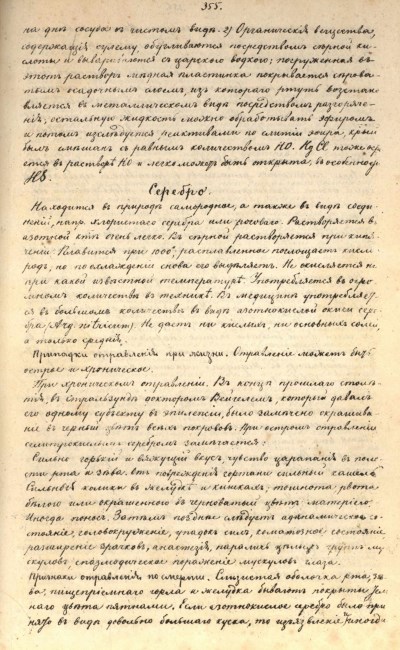 355.
на днѣ сосуда въ чистомъ видѣ. 2) Органическія вещества,
содержащія сулему, обугливаются посредствомъ сѣрной ки-
слоты и вывариваются съ царскою водкою; погруженная въ
этотъ растворъ мѣдная пластинка покрывается сѣрова-
тымъ осадочнымъ слоемъ, изъ котораго ртуть возстано-
вляется въ металлическомъ видѣ посредствомъ разгоряче-
нія, остальную жидкость можно обработывать эфиромъ
и потомъ изслѣдуется реактивами по слитіи эфира,
былъ смѣшанъ съ равнымъ количествомъ HO. Hg Cl тоже
ется въ растворѣ HO и легко можетъ быть открыта, въ особенно
HS.
Серебро.
Находится въ природѣ самородное, а также въ видѣ соеди-
неній, напр. хлористаго серебра или роговаго. Растворяется въ
азотной к^тѣ очень легко. Въ сѣрной растворяется при кипя-
ченіи. Плавится при 1000°; расплавленное поглощаетъ кисло-
родъ, но по охлажденіи снова его выдѣляетъ. Не окисляется ни
при какой извѣстной температурѣ. Употребляется въ огро-
мномъ количествѣ въ техникѣ. Въ медицинѣ употребляет-
ся въ большомъ количествѣ въ видѣ азотнокислой окиси сере-
бра (Arg. nitricum). Не даетъ ни кислыхъ, ни основныхъ солей,
а только среднія.
Припадки отравленія при жизни. Отравленіе можетъ быть
острое и хроническое.
При хроническомъ отравленіи. Въ концѣ прошлаго столѣ-
тія, въ Стральзундѣ докторомъ Вейгелемъ, который давалъ
его одному субъекту въ эпилепсіи, было замѣчено окрашива-
ніе въ черный цвѣтъ всѣхъ покрововъ. При остромъ отравленіи
селитрокислымъ серебромъ замѣчается:
Сильно горькій и вяжущій вкусъ, чувство царапанія въ поло-
сти рта и зѣва, отъ поврежденія гортани сильный кашель.
Сильныя колики въ желудкѣ и кишкахъ, тошнота, рвота
бѣлою или окрашенною въ черноватый цвѣтъ матеріею.
Иногда поносъ. Затѣмъ позднѣе слѣдуетъ адинамическое со-
стояніе, головокруженіе, упадокъ силъ, соматозное состояніе
расширеніе зрачковъ, анастезія, параличъ цѣлыхъ группъ му-
скуловъ спазмодическое пораженіе мускуловъ глаза.
Признаки отравленія по смерти. Слизистая оболочка рта, зѣ-
ва, пищепріемнаго горла и желудка бываютъ покрыты
наго цвѣта пятнами. Если азотнокислое серебро было при-
нято въ видѣ довольно большаго куска, то изъязвленія иногда